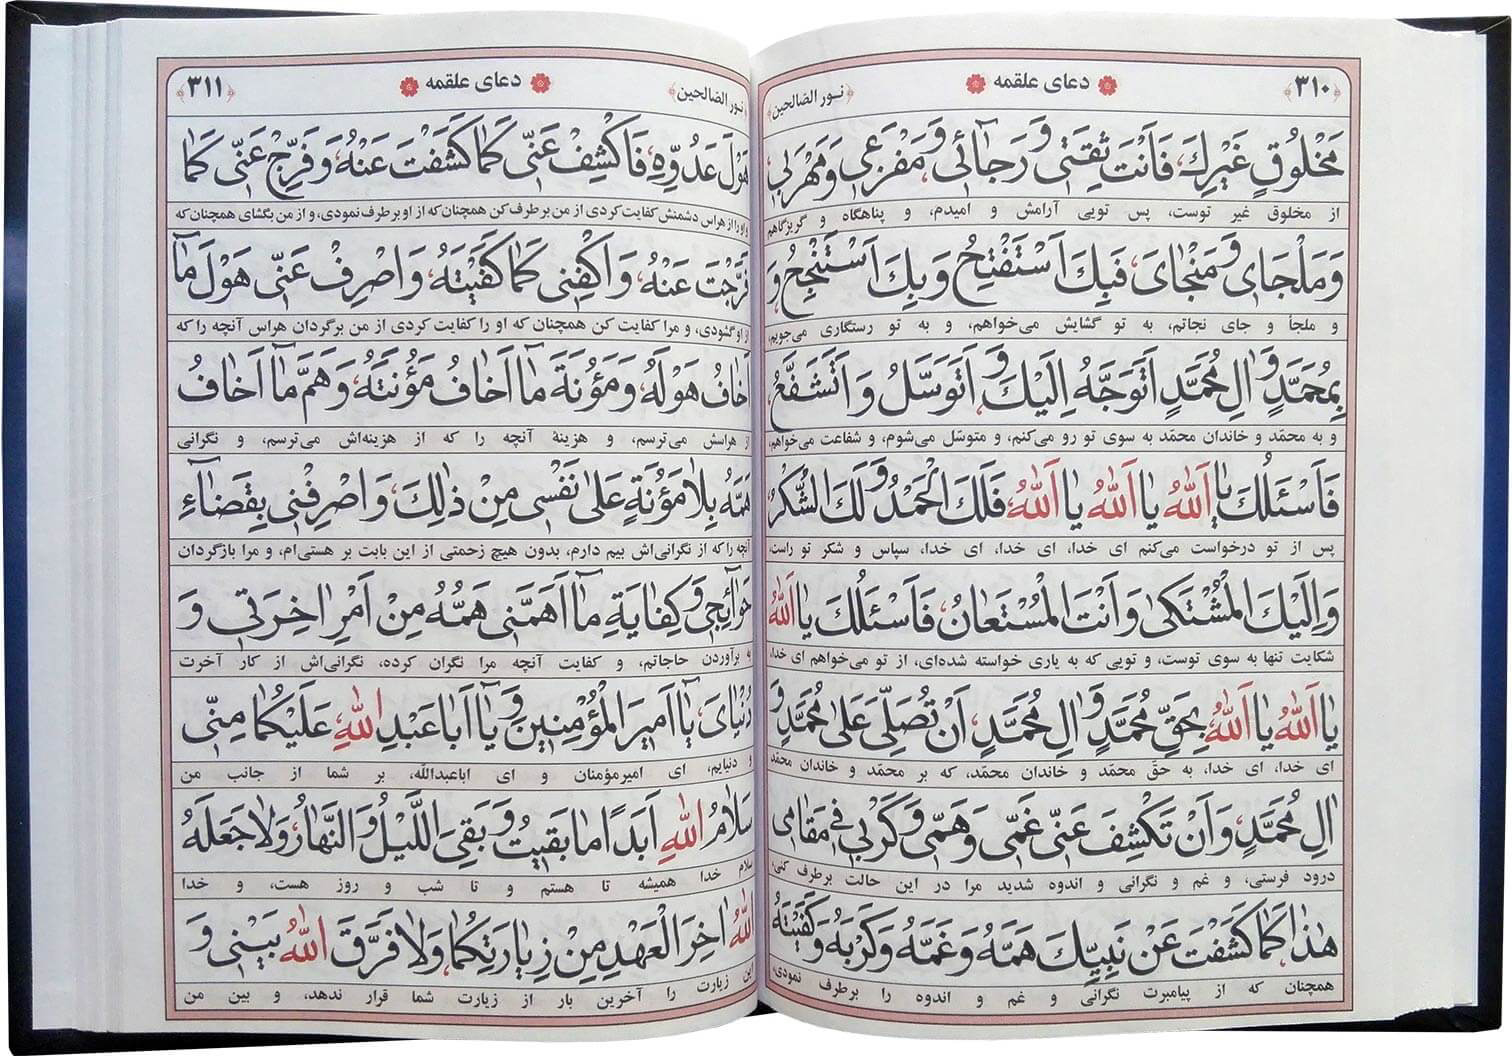 ﴿۳۱۰﴾ دعای علقمه ﴿نور الصالحین﴾
مَخْلُوقٍ غَيْرِكَ، فَاَنْتَ ثِقَتى وَ رَجآئى، وَ مَفْزَعى وَ مَهْرَبى،
از مخلوق غیر توست، پس تویی آرامش و امیدم، و پناهگاه و گریزگاهم
وَ مَلْجَاىَ وَ مَنْجاىَ، فَبِكَ اَسْتَفْتِحُ، وَ بِكَ اَسْتَنْجِحُ، وَ
و ملجأ و جای نجاتم، به تو گشایش می‌خواهم، و به تو رستگاری می‌جویم،
بِمُحَمَّدٍ وَ الِ مُحَمَّدٍ اَتَوَجَّهُ اِلَيْكَ، وَ اَتَوَسَّلُ وَ اَتَشَفَّعُ،
و به محمّد و خاندان محمّد به سوی تو رو می‌کنم، و متوسّل می‌شوم، و شفاعت می‌خواهم،
فَاَسْئَلُكَ يا اَللّهُ يا اَللّهُ يا اَللّهُ، فَلَكَ الْحَمْدُ وَ لَكَ الشُّكْرُ،
پس از تو درخواست می‌کنم ای خدا، ای خدا، ای خدا، سپاس و شکر تو راست،
وَ اِلَيْكَ الْمُشْتَكى، وَ اَنْتَ الْمُسْتَعانُ، فَاَسْئَلُكَ يا اَللّهُ
شکایت تنها به سوی توست، و تویی که به یاری خواسته شده‌ای، از تو می‌خواهم ای خدا،
يا اَللّهُ يا اَللّهُ، بِحَقِّ مُحَمَّدٍ وَ الِ مُحَمَّدٍ، اَنْ تُصَلِّىَ عَلى مُحَمَّدٍ وَ
ای خدا، ای خدا، به حقّ محمّد و خاندان محمّد، که بر محمّد و خاندان محمّد
الِ مُحَمَّدٍ، وَ اَنْ تَكْشِفَ عَنّى غَمّى وَ هَمّى وَ كَرْبى فى مَقامى
درود فرستی، و غم و نگرانی و اندوه شدید مرا در این حالت برطرف کنی،
هذا، كَما كَشَفْتَ عَنْ نَبِيِّكَ هَمَّهُ وَ غَمَّهُ وَ كَرْبَهُ، وَ كَفَيْتَهُ
همچنان که از پیامبرت نگرانی و غم و اندوه را برطرف نمودی،
﴿نور الصالحین﴾ دعای علقمه ﴿۳۱۱﴾
هَوْلَ عَدُوِّهِ، فَاكْشِفْ عَنّى كَما كَشَفْتَ عَنْهُ، وَ فَرِّجْ عَنّى كَما
و او را از هراس دشمنش کفایت کردی از من برطرف کن همچنان که از او برطرف نمودی، و از من بگشای همچنان که
فَرَّجْتَ عَنْهُ، وَ اكْفِنى كَما كَفَيْتَهُ، وَ اصْرِفْ عَنّى هَوْلَ مآ
از او گشودی، و مرا کفایت کن همچنان که او را کفایت کردی از من برگردان هراس آنچه را که
اَخافُ هَوْلَهُ، وَ مَؤُنَةَ مآ اَخافُ مَؤُنَتَهُ، وَ هَمَّ مآ اَخافُ
از هراسش می‌ترسم، و هزینهٔ آنچه را که از هزینه‌اش می‌ترسم، و نگرانی
هَمَّهُ بِلا مَؤُنَةٍ عَلى نَفْسى مِنْ ذلِكَ، وَ اصْرِفْنى بِقَضآءِ
آنچه را که از نگرانی‌اش بیم دارم، بدون هیچ زحمتی از این بابت بر هستی‌ام، و مرا بازگردان
حَوآئِجى، وَ كِفايَةِ مآ اَهَمَّنى هَمُّهُ مِنْ اَمْرِ اخِرَتى وَ
به برآوردن حاجاتم، و کفایت آنچه مرا نگران کرده، نگرانی‌اش از کار آخرت
دُنْياىَ، يآ اَميرَ الْمُؤْمِنينَ وَ يآ اَبا عَبْدِ اللّهِ، عَلَيْكُما مِنّى
و دنیایم، ای امیرمؤمنان و ای اباعبداللّه، بر شما از جانب من
سَلامُ اللّهِ اَبَدًا ما بَقيتُ وَ بَقِىَ اللَّيْلُ وَ النَّهارُ، وَ لا جَعَلَهُ
سلام خدا همیشه تا هستم و تا شب و روز هست، و خدا
اللّهُ اخِرَ الْعَهْدِ مِنْ زِيارَتِكُما، وَ لا فَرَّقَ اللّهُ بَيْنى وَ
این زیارت را آخرین بار از زیارت شما قرار ندهد، و بین من